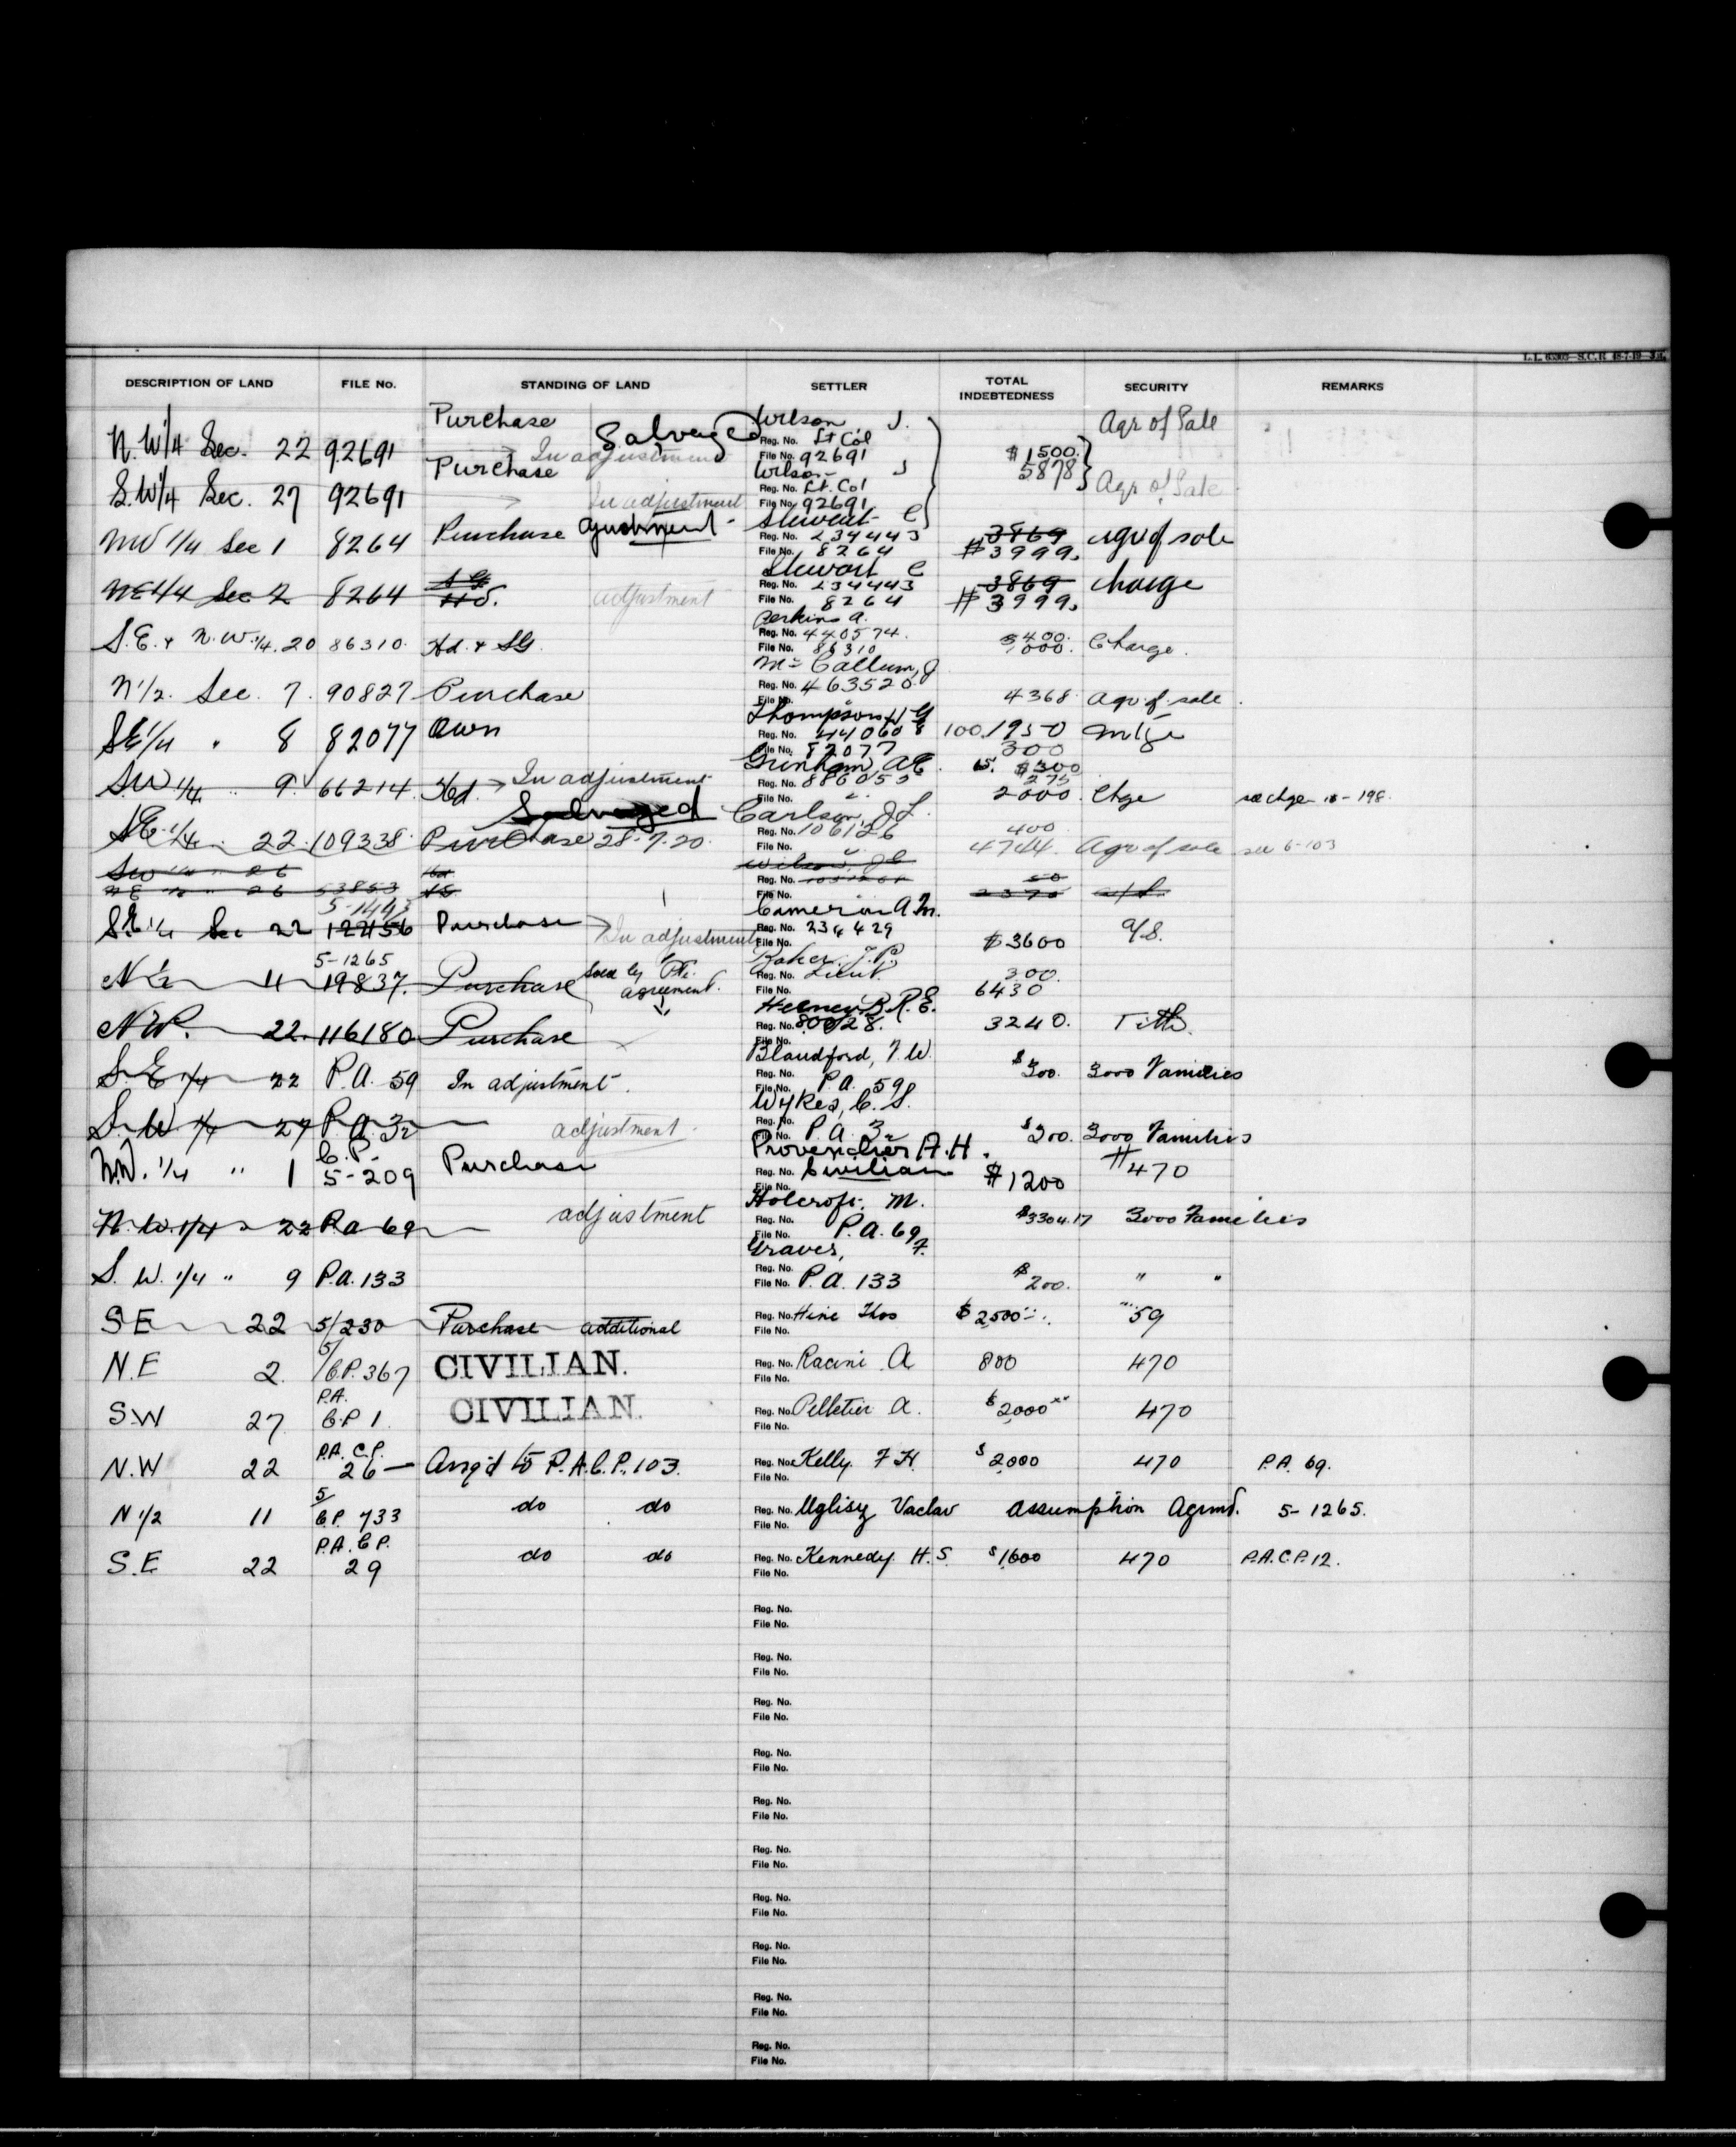 DESCRIPTION OF LAND FILE No. STANDING OF LAND SETTLER TOTAL INDEBTEDNESS SECURITY REMARKS
Purchase Salvaged Wilson J. Agr of Sale
N.W1/4 Sec. 22 92691 In adjustment Reg. No. Lt Col $1500.
File No. 92691
Purchase Wilson J 5878
S.W1/4 Sec. 27 92691 In adjustment Reg. No. Lt. Col Agr of Sale
File No. 92691
Stewart C
NW 1/4 Sec 1 8264 Purchase Reg. No. 234443 3869 Agr of sale
File No. 8264 $3999.
Stewart C
NE 1/4 Sec 2 8264 S.G. H.S. adjustment Reg. No. 234443 3869 Charge
File No. 8264 $3999.
Perkins A.
S.E. & N.W. 1/4. 20 86310 Hd. & SG. Reg. No. 440574. 3400. Charge.
File No. 86310
McCallum, J
N 1/2. Sec. 7. 90827 Purchase Reg. No. 463520. 4368 Agr. of sale
File No.
Thompson
SE 1/4 " 8 82077 Own Reg. No. 100. 1950 mtge
File No. 82077 300
In adjustment $300
SW 1/4 " 9 66214 Hd. Reg. No. 275
File No. 2000. Chge see chge 198.
Salvaged Carlson, J L.
SE 1/4 22. 109338 Purchase 28-7-20. Reg. No. 106126 400
File No. 4744. Agr of sale see 6-103
SW " " 26 Wilson, J C
NE 1/4 " 26 53853 Reg. No. 50
File No. 2370
5-1443 Cameron A.M.
SE 1/4 Sec 22 Purchase In adjustment Reg. No. 234429 $3600 A/S.
File No.
5-1265 Baker, J.P.
N 1/2 11 19837. Purchase Sold by Pte. agreement. Reg. No. Lieut. 300.
File No. 6430
B.R.E.
N.W. 22. 116180 Purchase Reg. No. 3240. Title.
File No.
Blandford, F.W.
S.E 1/4 22 P.A. 59 In adjustment. Reg. No. $300. 3000 Families
File No. P.A. 59
Wykes, C. S.
S.W 1/4 27 P.A. 32 adjustment Reg. No. $200. 3000 Families
File No. P.A. 32
C.P. Provencher A.H.
N.W. 1/4 " 1 5-209 Purchase Reg. No. Civilian $1200 #470
File No.
Holcroft. M.
N. W. 1/4 " 22 P.A 69 adjustment Reg. No. $3304.17 3000 Families
File No. P.A. 69
Graves, F.
S. W. 1/4 " 9 P.A. 133 Reg. No.
File No. P.A. 133 $200. " "
SE 22 5/230 Purchase additional Reg. No. Hine Thos $2500 59
File No.
5/
N.E 2. C.P. 367 CIVILIAN. Reg. No. Racini A 800 470
File No.
P.A.
S.W 27 C.P 1. CIVILIAN. Reg. No. Pelletier A. $2000 470
File No.
P.A. C.P.
N.W 22 26 Ass'g'd to P.A.C.P. 103. Reg. No. Kelly. F H. $2000 470 P.A. 69.
File No.
5/
N 1/2 11 C.P. 733 do do Reg. No. Uglisz Vaclav Assumption Agrmt. 5-1265.
File No.
P.A. C P.
S.E 22 29 do do Reg. No. Kennedy. H.S. $1600 470 P.A.C.P. 12.
File No.
Reg. No.
File No.
Reg. No.
File No.
Reg. No.
File No.
Reg. No.
File No.
Reg. No.
File No.
Reg. No.
File No.
Reg. No.
File No.
Reg. No.
File No.
Reg. No.
File No.
Reg. No.
File No.